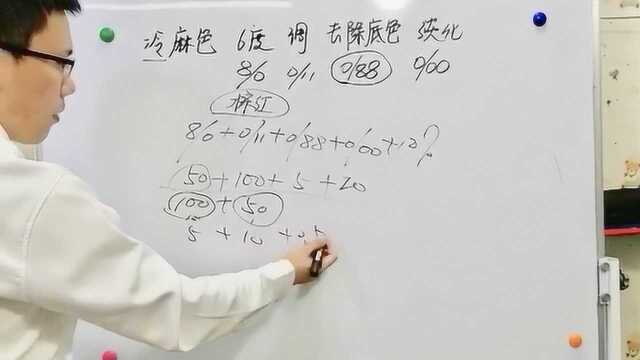 冷麻色 6度 调 去除底色 淡化
8/0 0/11 0/88 0/00
橙红
8/0+0/11+0/88+0/00+12%
50+100+5+20
100+50
5+10+0.5